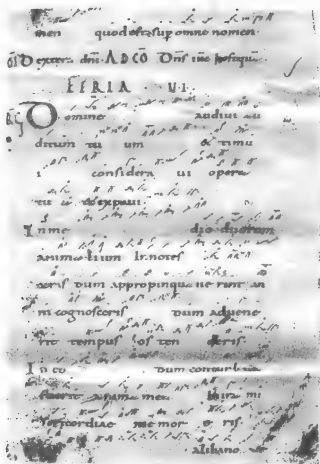 men quod est sup omne nomen
dextera dni AD CO Dns ihc postquã
FERIA VI
RG Domine audivi au
ditum tu um & timu
i considera vi opera
tu a & expavi
In me dio duorum
anima lium In notes
ceris dum appropinqua ve rint an
ni cognosceris dum advene
rit tempus os ten deris
In eo dum conturbata
fuerit anima mea In ira mi
sericordiae me mor e ris
a libano